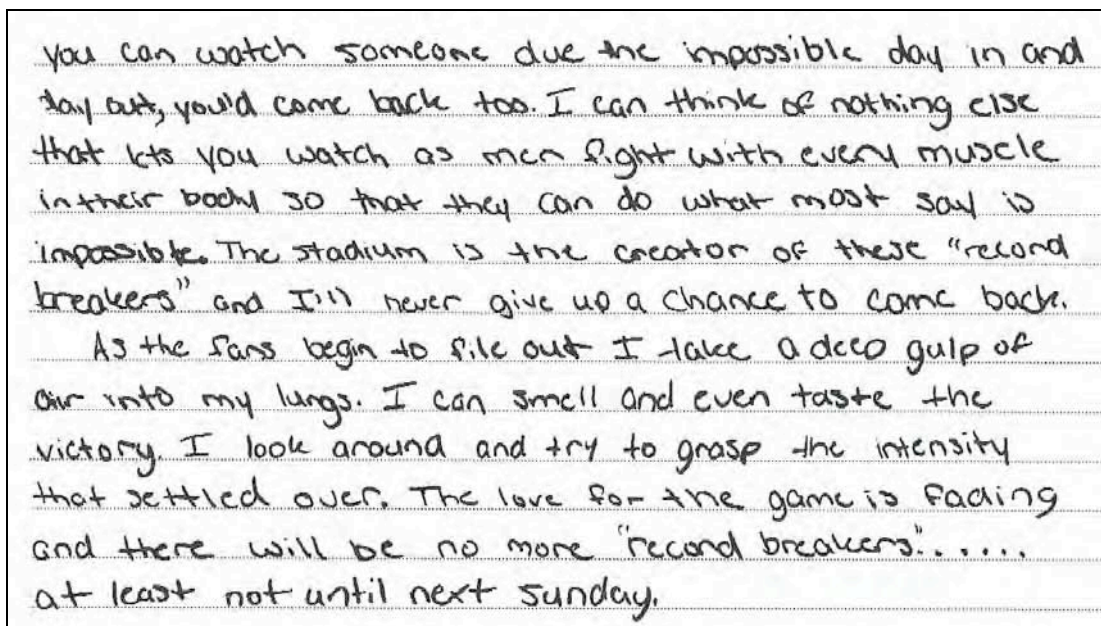 you can watch someone due the impossible day in and
day out, you'd come back too. I can think of nothing else
that lets you watch as men fight with every muscle
in their body so that they can do what most say is
impossible. The stadium is the creator of these "record
breakers" and I'll never give up a chance to come back.
As the fans begin to file out I take a deep gulp of
air into my lungs. I can smell and even taste the
victory. I look around and try to grasp the intensity
that settled over. The love for the game is fading
and there will be no more "record breakers"......
at least not until next sunday.